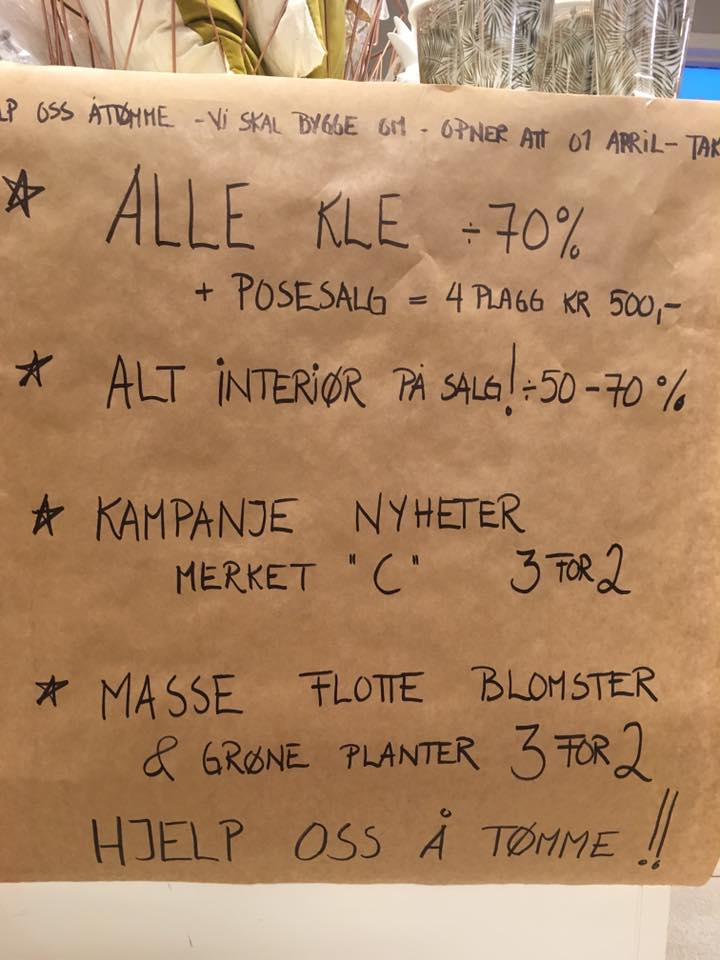 LP OSS Å TØMME - VI SKAL BYGGE OM - OPNER ATT 01 APRIL - TAK
☆ ALLE KLE ÷70%
+ POSESALG = 4 PLAGG KR 500,-
☆ ALT INTERIØR PÅ SALG! ÷50-70%
☆ KAMPANJE NYHETER
MERKET "C" 3 FOR 2
☆ MASSE FLOTTE BLOMSTER
& GRØNE PLANTER 3 FOR 2
HJELP OSS Å TØMME !!